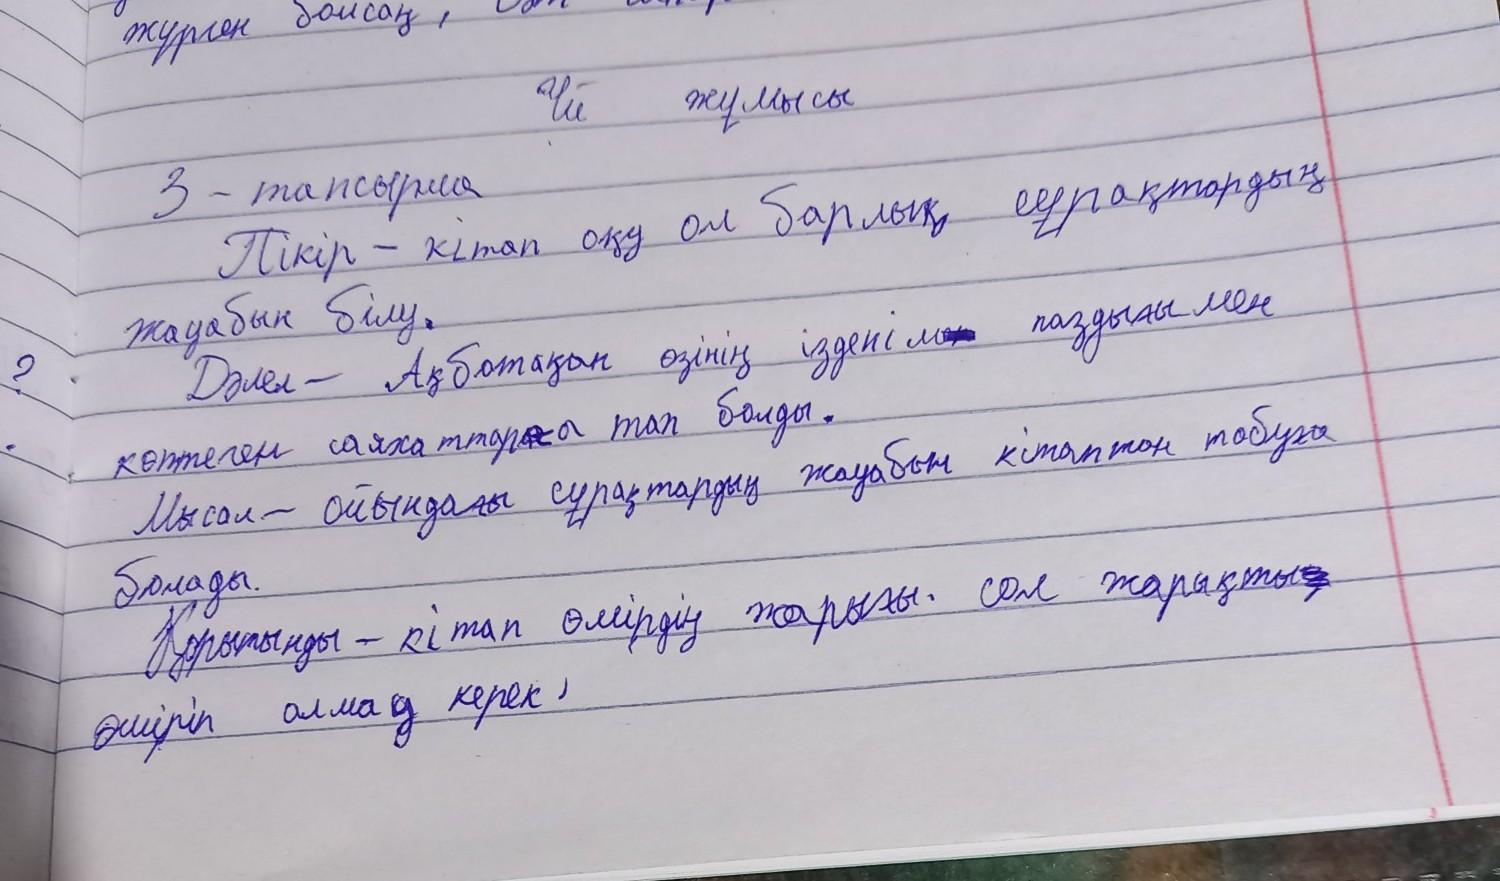 жүрген болсаң,
Үй жұмысы
3 - тапсырма
Пікір - кітап оқу ол барлық сұрақтардың
жауабын білу.
Дәлел - Ақботақан өзінің ізденім паздығы мен
көптеген саяхаттарға тап болды.
Мысал - ойындағы сұрақтардың жауабын кітаптан табуға
болады.
Қорытынды - кітап өмірдің жарығы. сол жарықты
өшіріп алмау керек,
?